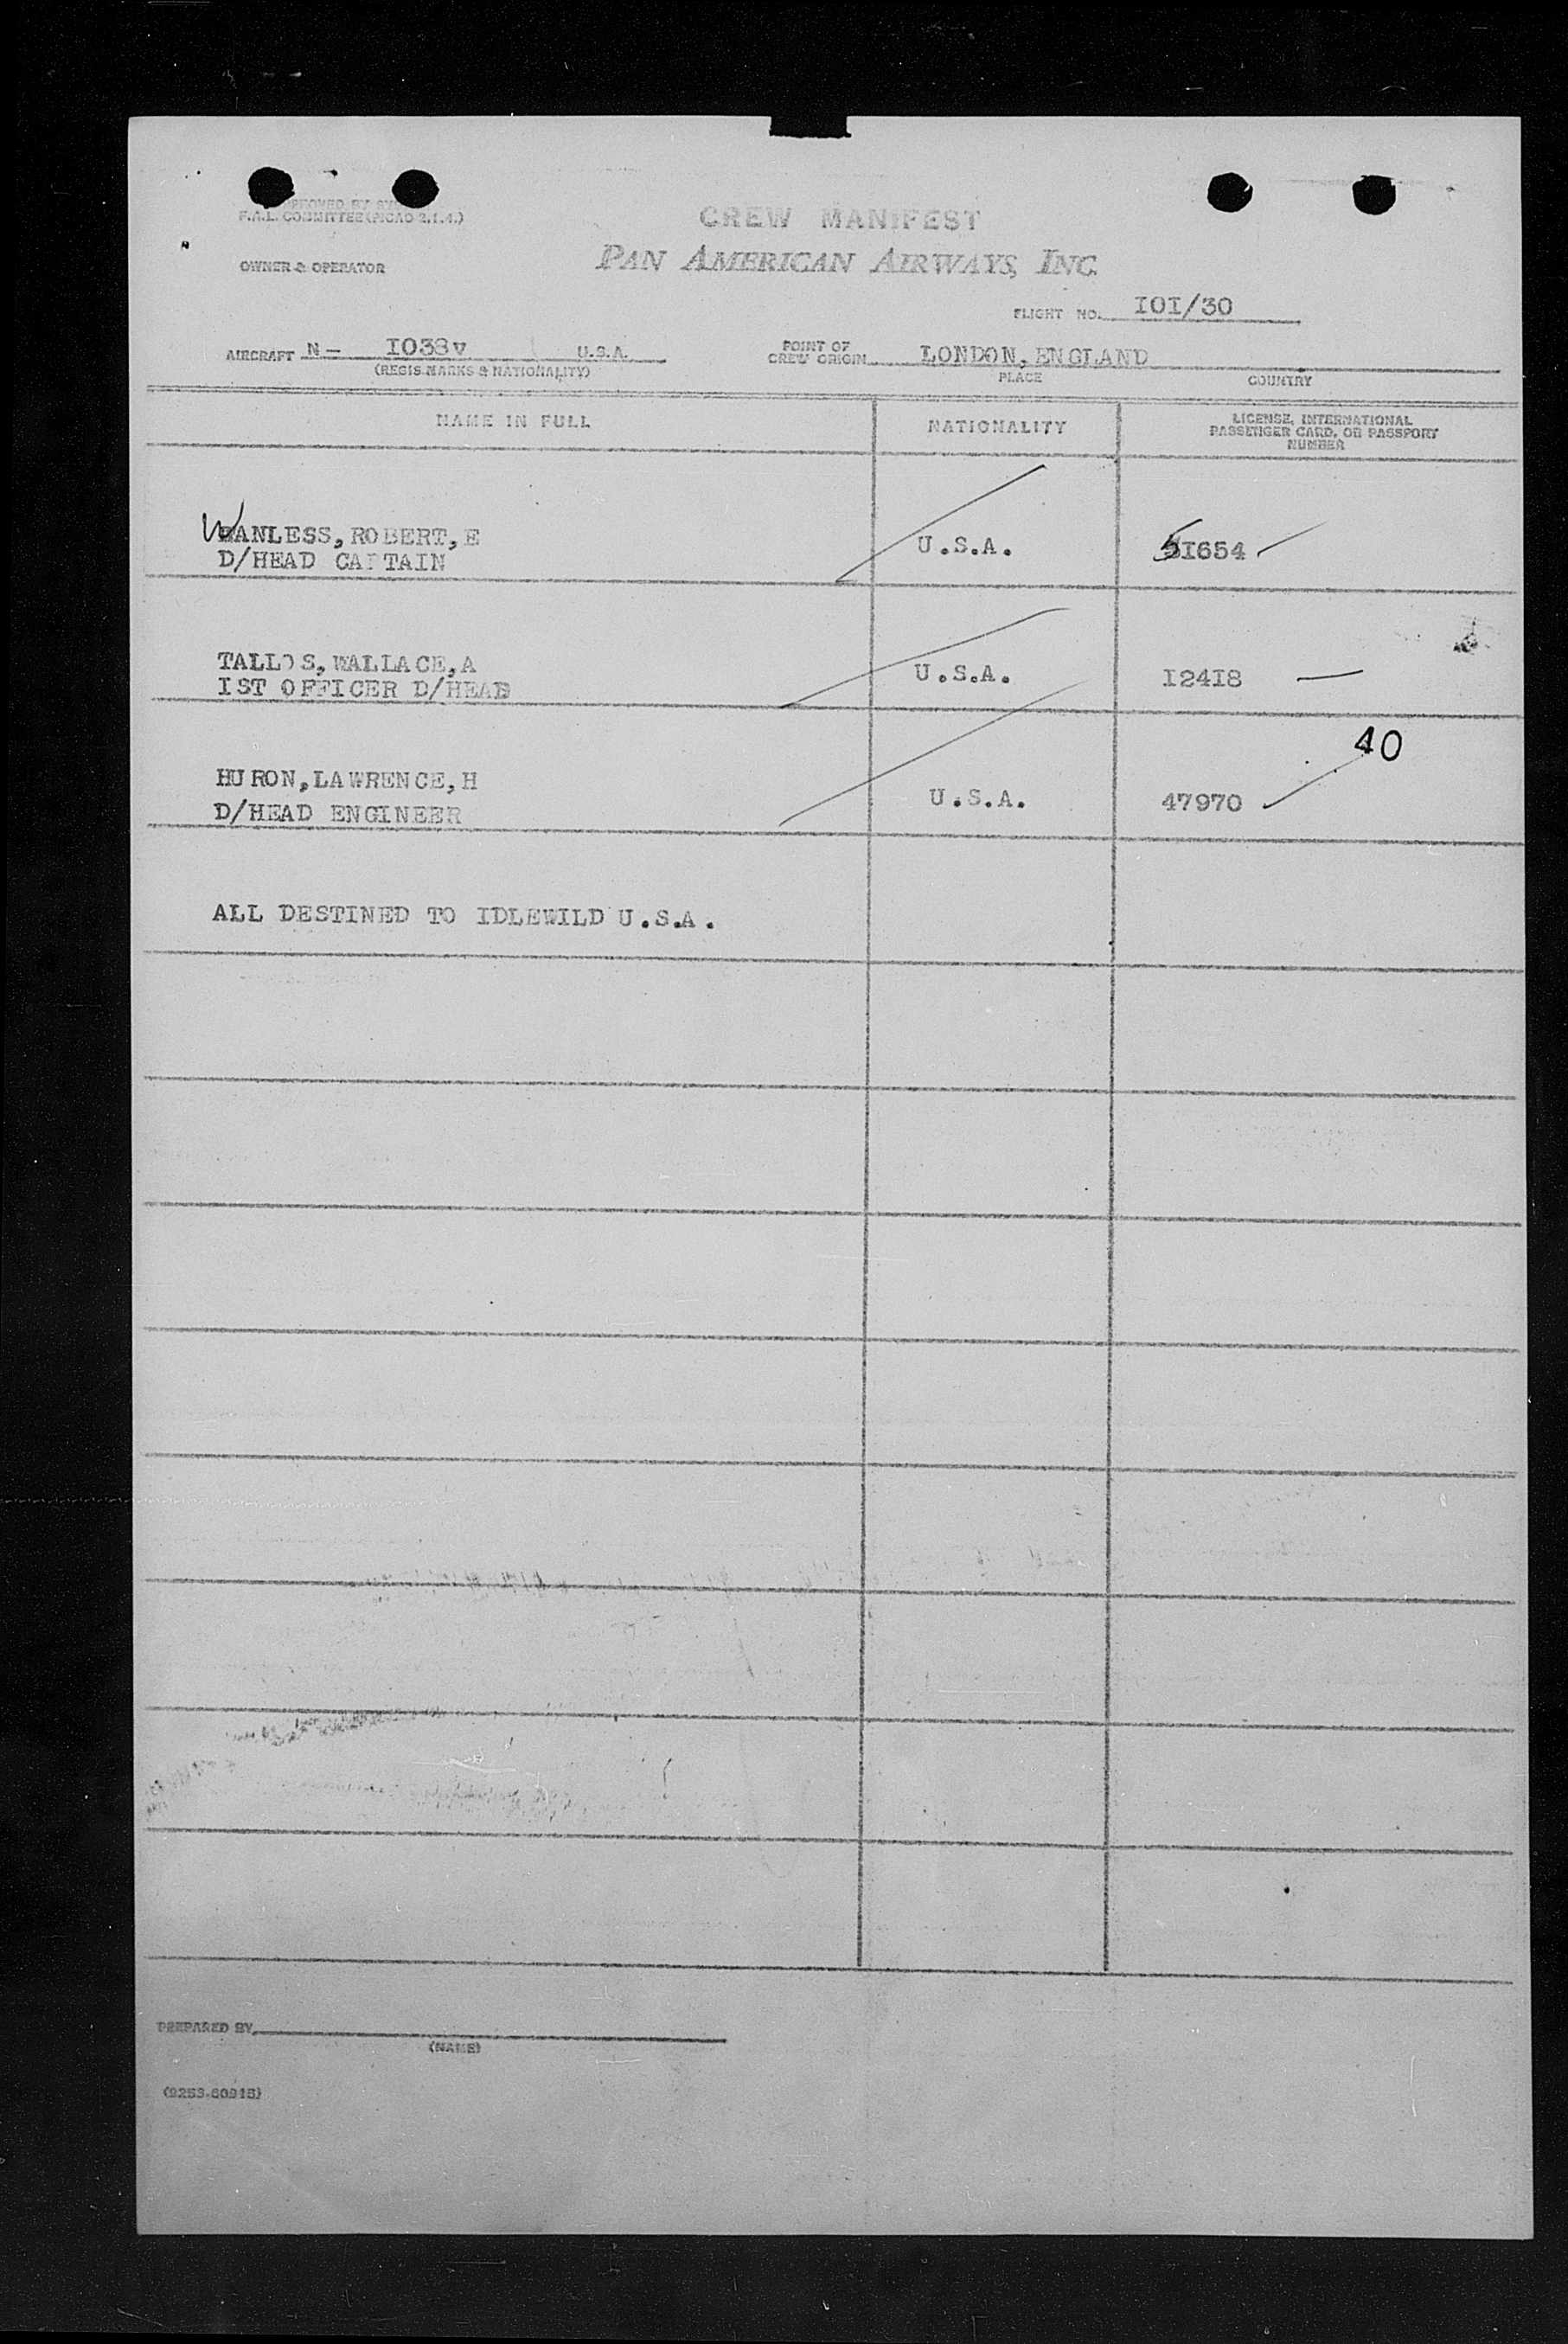 APPROVED BY
F.A.L. COMMITTEE (PICAO 2.1.4.)
CREW MANIFEST
OWNER & OPERATOR
PAN AMERICAN AIRWAYS, INC.
FLIGHT NO. IOI/30
AIRCRAFT N- IO38V U.S.A.
(REGIS. MARKS & NATIONALITY)
POINT OF
CREW ORIGIN LONDON, ENGLAND
PLACE COUNTRY
NAME IN FULL
NATIONALITY
LICENSE, INTERNATIONAL
PASSENGER CARD, OR PASSPORT
NUMBER
WANLESS, ROBERT, E
D/HEAD CAPTAIN
U.S.A.
5I654
TALLOS, WALLACE, A
IST OFFICER D/HEAD
U.S.A.
I24I8
40
HURON, LAWRENCE, H
D/HEAD ENGINEER
U.S.A.
47970
ALL DESTINED TO IDLEWILD U.S.A.
PREPARED BY
(NAME)